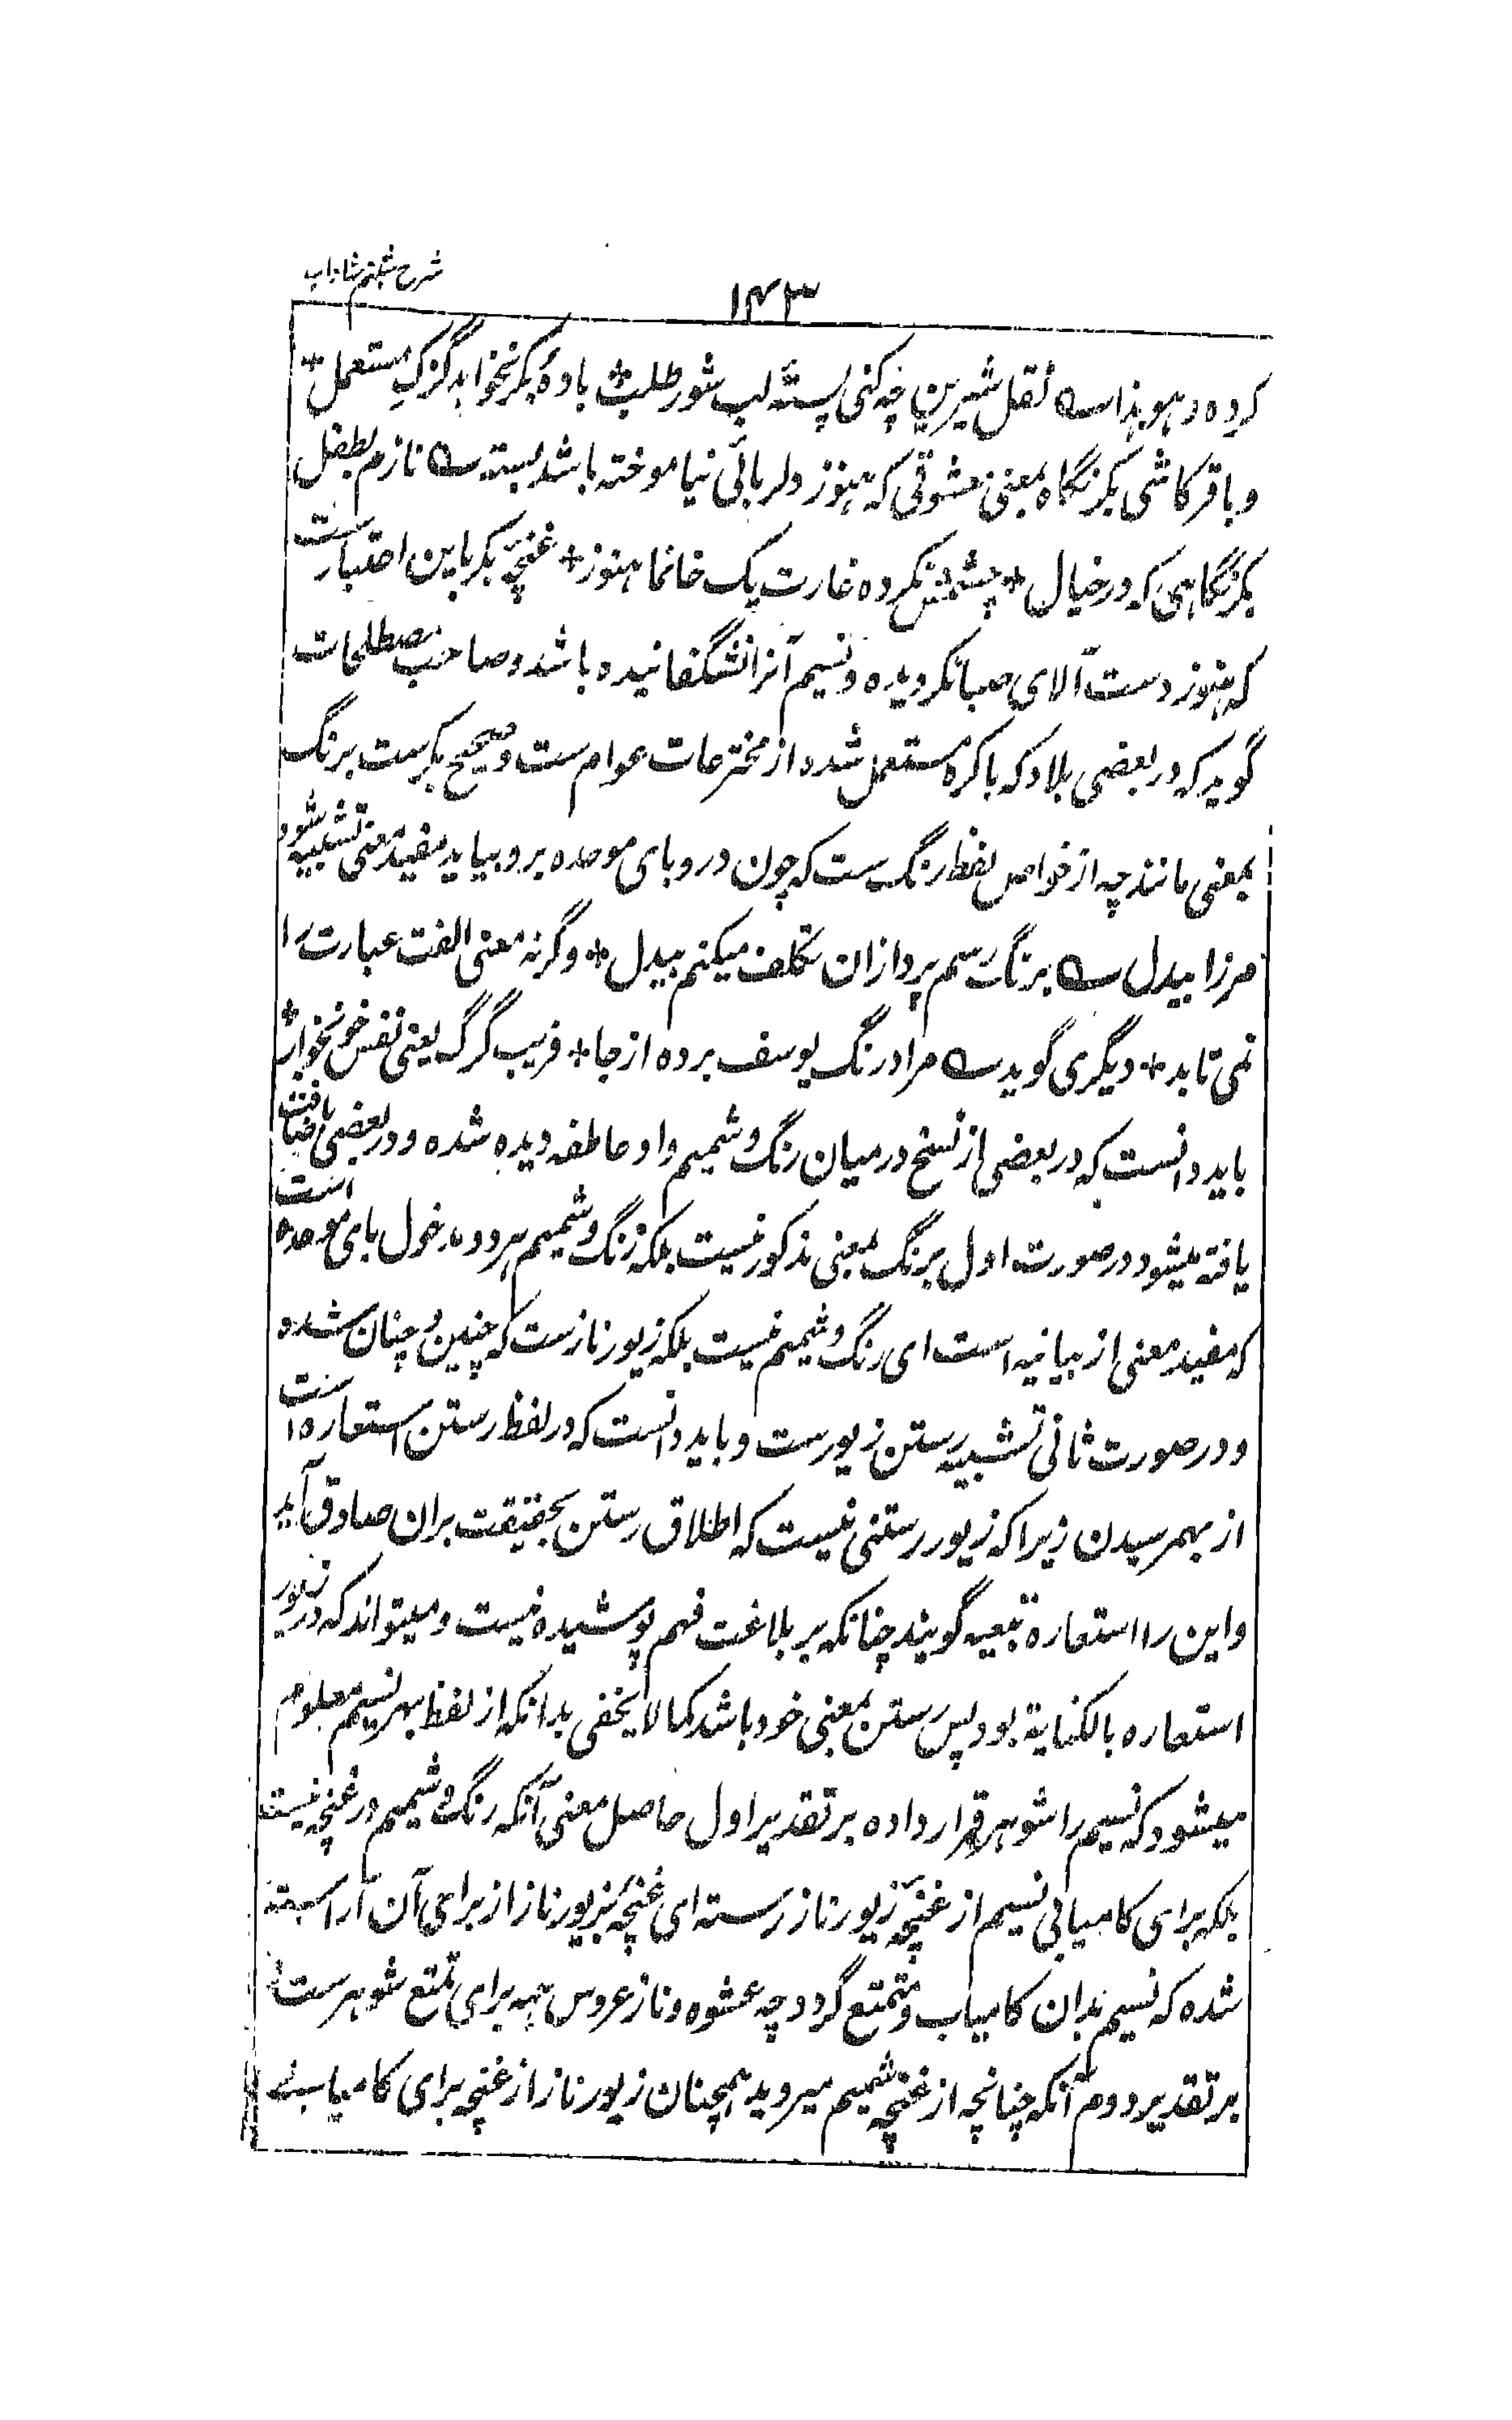 شرح شبنم شاداب
۱۴۳
کرده و ہو ہذا ؎ نقل شیرین چہ کنی پستۂ لب شور طلب + بادۂ بکر نخواہد گزک مستعمل +
و باقر کاشی بکر نگاہ بمعنی معشوقی کہ ہنوز دلربائی نیاموختہ باشد بستہ ؎ نازم بطفل
بکر نگاہی کہ در خیال + چشمش نکردہ غارت یک خانما ہنوز + غنچۂ بکر باین اعتبارست
کہ ہنوز دست آلای صبا نگردیدہ و نسیم آنرا نشگفانیدہ باشد و صاحب مصطلحات
گوید کہ در بعضی بلاد کہ باکرہ مستعمل شدہ از مخترعات عوام ست و صحیح بکرست برنگ
بمعنی مانند چہ از خواص لفظ رنگ ست کہ چون در و بای موحدہ برو بیاید مفید معنی تشبیہ شود
مرزا بیدل ؎ برنگ رسم پردازان تکلف میکنم بیدل + وگرنہ معنی الفت عبارت را
نمی تابد + دیگری گوید ؎ مرا درنگ یوسف بردہ از جا + فریب گرگ یعنی نفس خونخوار +
باید دانست کہ در بعضی از نسخ درمیان رنگ و شمیم واو عاطفہ دیدہ شدہ و در بعضی باضافت
یافتہ میشود در صورت اول برنگ بمعنی مذکور نیست بلکہ رنگ و شمیم ہر دو مدخول بای موحدہ است
کہ مفید معنی از بیانیہ است ای رنگ و شمیم نیست بلکہ زیور نازست کہ چنین و چنان شدہ
و در صورت ثانی تشبیہ رستن زیورست و باید دانست کہ در لفظ رستن استعارہ است
از بہمرسیدن زیرا کہ زیور رستنی نیست کہ اطلاق رستن بحقیقت بران صادق آید
و این را استعارہ تبعیہ گویند چنانکہ بر بلاغت فہم پوشیدہ نیست و میتواند کہ در زیور
استعارہ بالکنایۃ بود پس رستن بمعنی خود باشد کما لا یخفی بدانکہ از لفظ بہر نسیم معلوم
میشود کہ نسیم را شوہر قرار دادہ بر تقدیر اول حاصل معنی آنکہ رنگ و شمیم در غنچہ نیست
بلکہ برای کامیابی نسیم از غنچۂ زیور ناز رستہ ای غنچہ بزیور ناز از برای آن آراستہ
شدہ کہ نسیم بدان کامیاب و متمتع گردد چہ عشوہ و ناز عروس ہمہ برای تمتع شوہرست
بر تقدیر دوم آنکہ چنانچہ از غنچہ شمیم میروید ہمچنان زیور ناز از غنچہ برای کامیابی